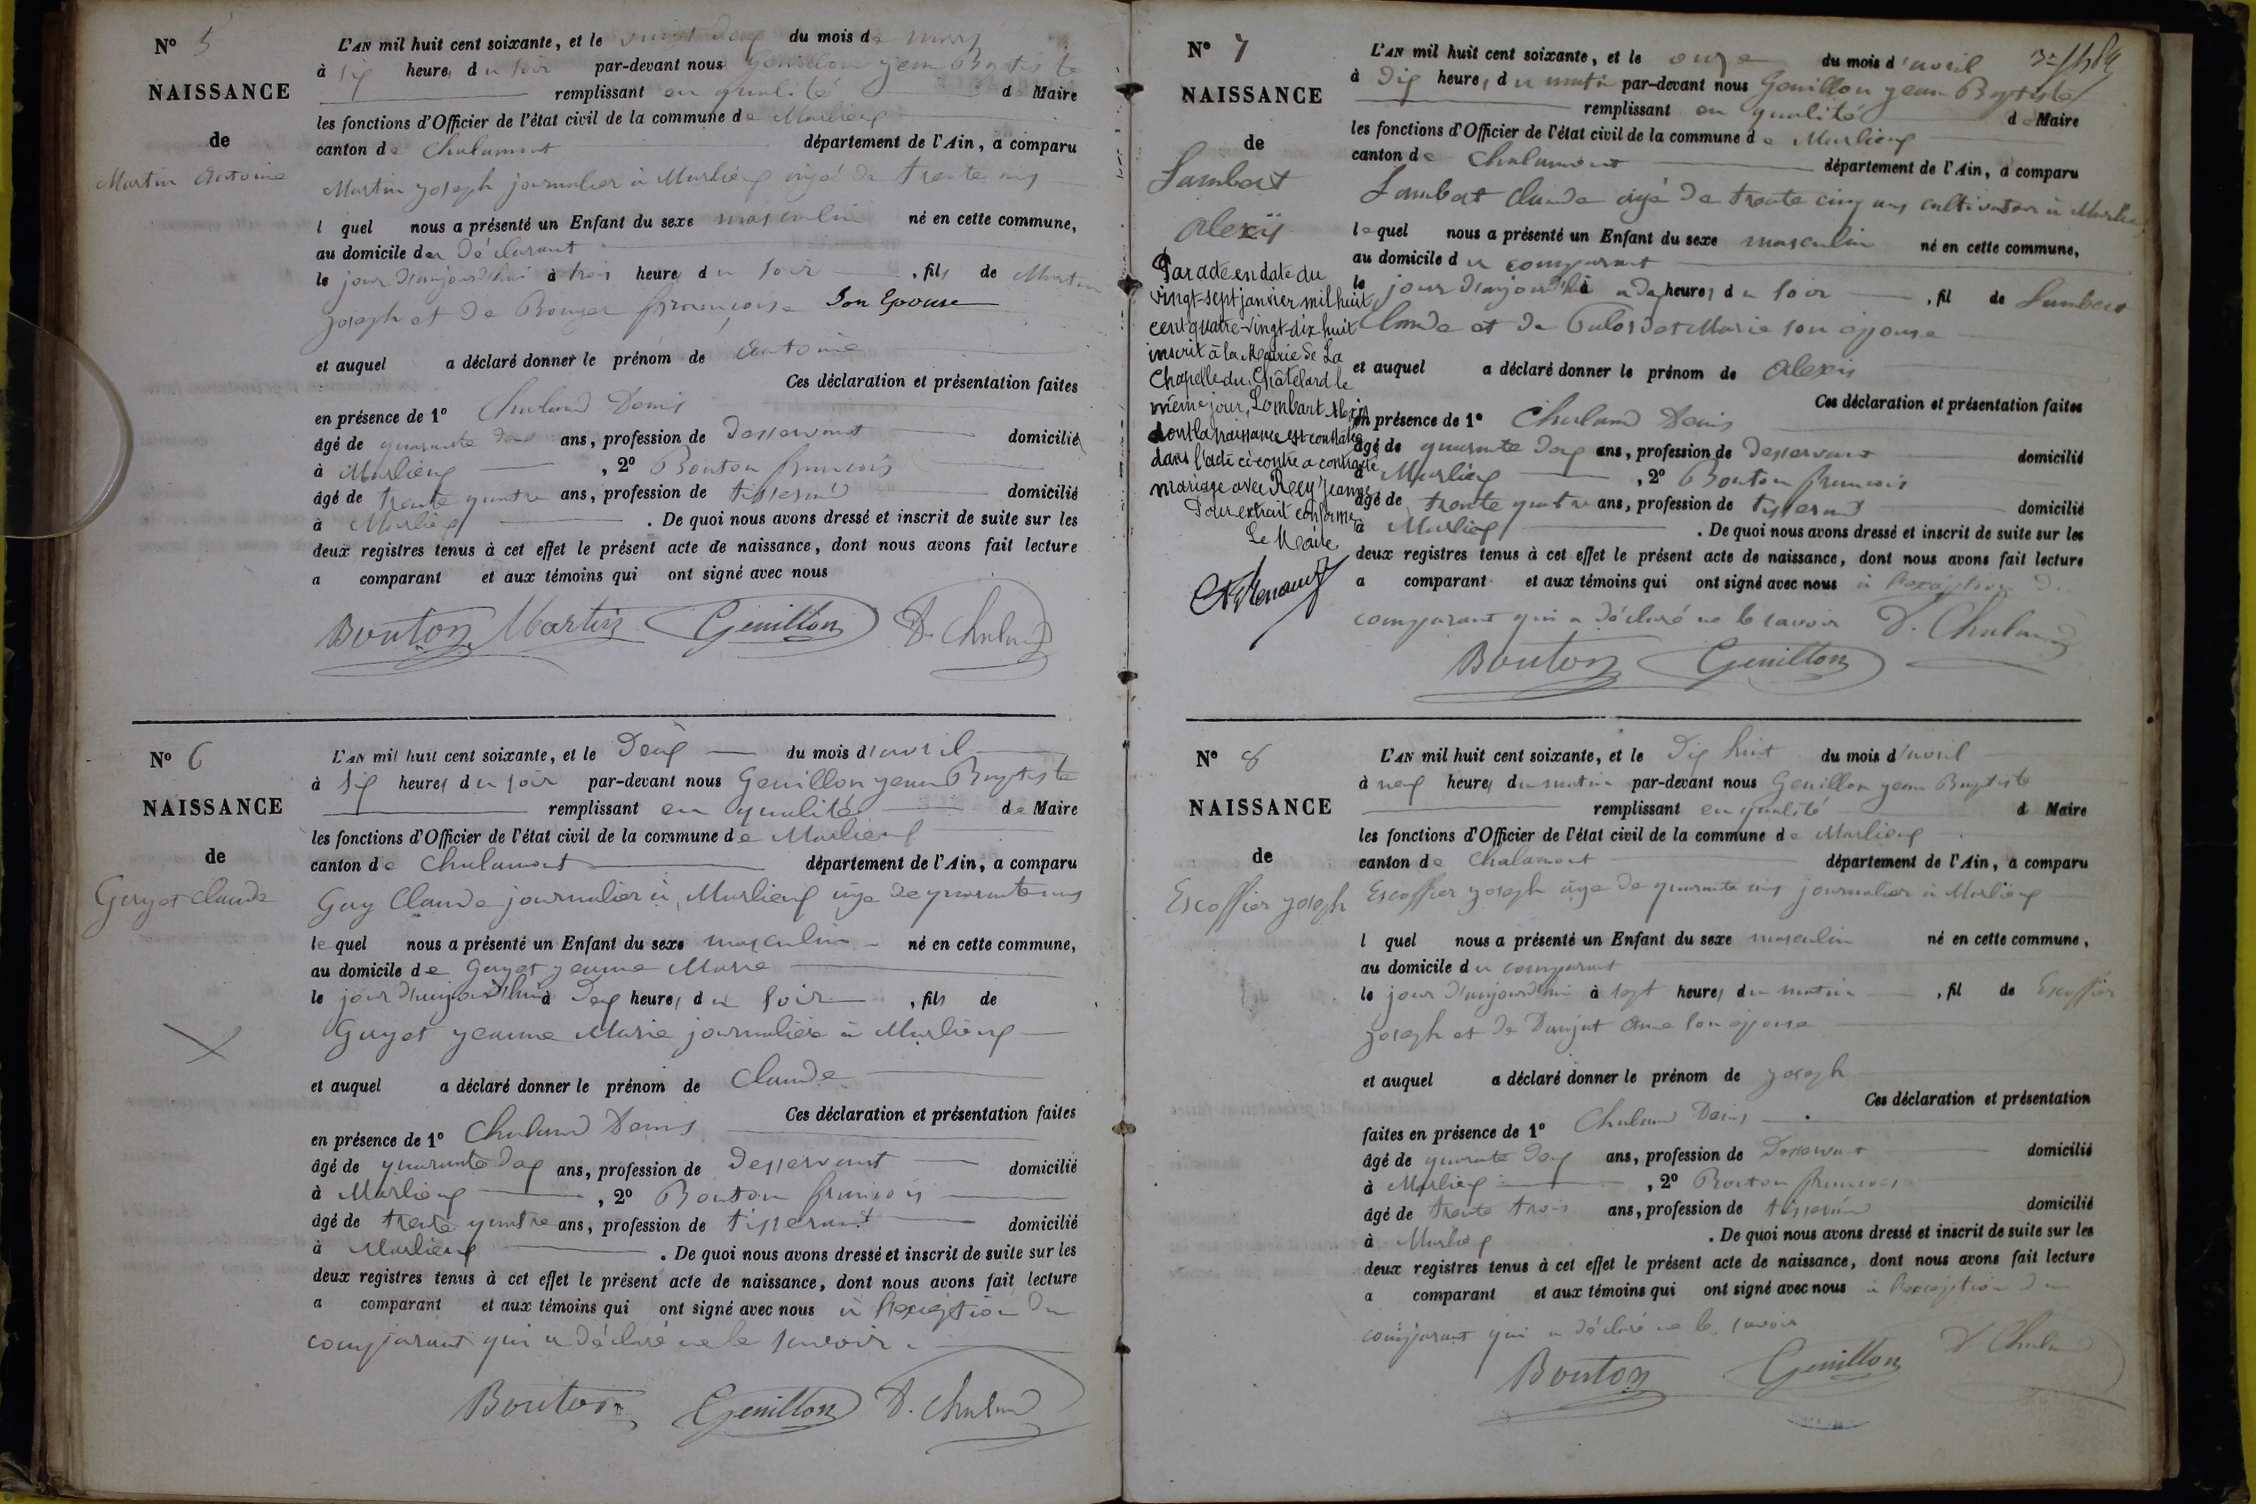 N° 5
NAISSANCE
de
Martin Antoine
L'AN mil huit cent soixante, et le vingt deux du mois de mars
à six heures du soir par-devant nous Genillon jean Baptiste
remplissant en qualité d Maire
les fonctions d'Officier de l'état civil de la commune de Marlieux
canton de Chalamont département de l'Ain, a comparu
Martin joseph journalier à Marlieux âgé de trente ans
l quel nous a présenté un Enfant du sexe masculin né en cette commune,
au domicile du Déclarant
le jour d'aujourd'hui à trois heures du soir, fils de Martin
joseph et de françoise Son Epouse
et auquel a déclaré donner le prénom de Antoine
Ces déclaration et présentation faites
en présence de 1° Chaland Denis
âgé de quarante deux ans, profession de desservant domicilié
à Marlieux, 2° Bouton francois
âgé de trente quatre ans, profession de tisserand domicilié
à Marlieux. De quoi nous avons dressé et inscrit de suite sur les
deux registres tenus à cet effet le présent acte de naissance, dont nous avons fait lecture
a comparant et aux témoins qui ont signé avec nous
Bouton Martin Genillon D. Chaland
N° 6
NAISSANCE
de
Guyot Claude
L'AN mil huit cent soixante, et le Deux du mois d'avril
à six heures du soir par-devant nous Genillon jean Baptiste
remplissant en qualité de Maire
les fonctions d'Officier de l'état civil de la commune de Marlieux
canton de Chalamont département de l'Ain, a comparu
Guy Claude journalier à Marlieux âgé de quarante ans
lequel nous a présenté un Enfant du sexe masculin né en cette commune,
au domicile de Guyot jeanne Marie
le jour d'aujourd'hui à deux heures du soir, fils de
Guyot jeanne Marie journalière à Marlieux
et auquel a déclaré donner le prénom de Claude
Ces déclaration et présentation faites
en présence de 1° Chaland Denis
âgé de quarante deux ans, profession de desservant domicilié
à Marlieux, 2° Bouton francois
âgé de trente quatre ans, profession de tisserand domicilié
à Marlieux. De quoi nous avons dressé et inscrit de suite sur les
deux registres tenus à cet effet le présent acte de naissance, dont nous avons fait lecture
a comparant et aux témoins qui ont signé avec nous à l'exception du
comparant qui a déclaré ne le savoir.
Bouton Genillon D. Chaland
N° 7
NAISSANCE
de
Lambert
Alexis
Par acte en date du
vingt-sept janvier mil huit
cent quatre-vingt-dix huit
inscrit à la Mairie de La
Chapelle du Châtelard le
même jour, Lombart Alexis
dont la naissance est constatée
dans l'acte ci-contre a contracté
mariage avec Rey Jeanne
Pour extrait conforme
Le Maire
L'AN mil huit cent soixante, et le onze du mois d'avril
à dix heures du matin par-devant nous Genillon jean Baptiste
remplissant en qualité d Maire
les fonctions d'Officier de l'état civil de la commune de Marlieux
canton de Chalamont département de l'Ain, a comparu
Lambert Claude âgé de trente cinq ans cultivateur à Marlieux
lequel nous a présenté un Enfant du sexe masculin né en cette commune,
au domicile du comparant
le jour d'aujourd'hui à heures du soir, fil de Lambert
Claude et de Marie son épouse
et auquel a déclaré donner le prénom de Alexis
Ces déclaration et présentation faites
en présence de 1° Chaland Denis
âgé de quarante deux ans, profession de desservant domicilié
à Marlieux, 2° Bouton francois
âgé de trente quatre ans, profession de tisserand domicilié
à Marlieux. De quoi nous avons dressé et inscrit de suite sur les
deux registres tenus à cet effet le présent acte de naissance, dont nous avons fait lecture
a comparant et aux témoins qui ont signé avec nous à l'exception d
comparant qui a déclaré ne le savoir D. Chaland
Bouton Genillon
N° 8
NAISSANCE
de
Escoffier joseph
L'AN mil huit cent soixante, et le Dix huit du mois d'avril
à neuf heures du matin par-devant nous Genillon jean Baptiste
remplissant en qualité d Maire
les fonctions d'Officier de l'état civil de la commune de Marlieux
canton de Chalamont département de l'Ain, a comparu
Escoffier joseph âgé de quarante ans journalier à Marlieux
l quel nous a présenté un Enfant du sexe masculin né en cette commune,
au domicile du comparant
le jour d'aujourd'hui à sept heures du matin, fil de Escoffier
joseph et de son épouse
et auquel a déclaré donner le prénom de joseph
Ces déclaration et présentation
faites en présence de 1° Chaland Denis
âgé de quarante deux ans, profession de Desservant domicilié
à Marlieux, 2° Bouton francois
âgé de trente trois ans, profession de tisserand domicilié
à Marlieux. De quoi nous avons dressé et inscrit de suite sur les
deux registres tenus à cet effet le présent acte de naissance, dont nous avons fait lecture
a comparant et aux témoins qui ont signé avec nous à l'exception du
comparant qui a déclaré ne le savoir
Bouton Genillon D Chaland